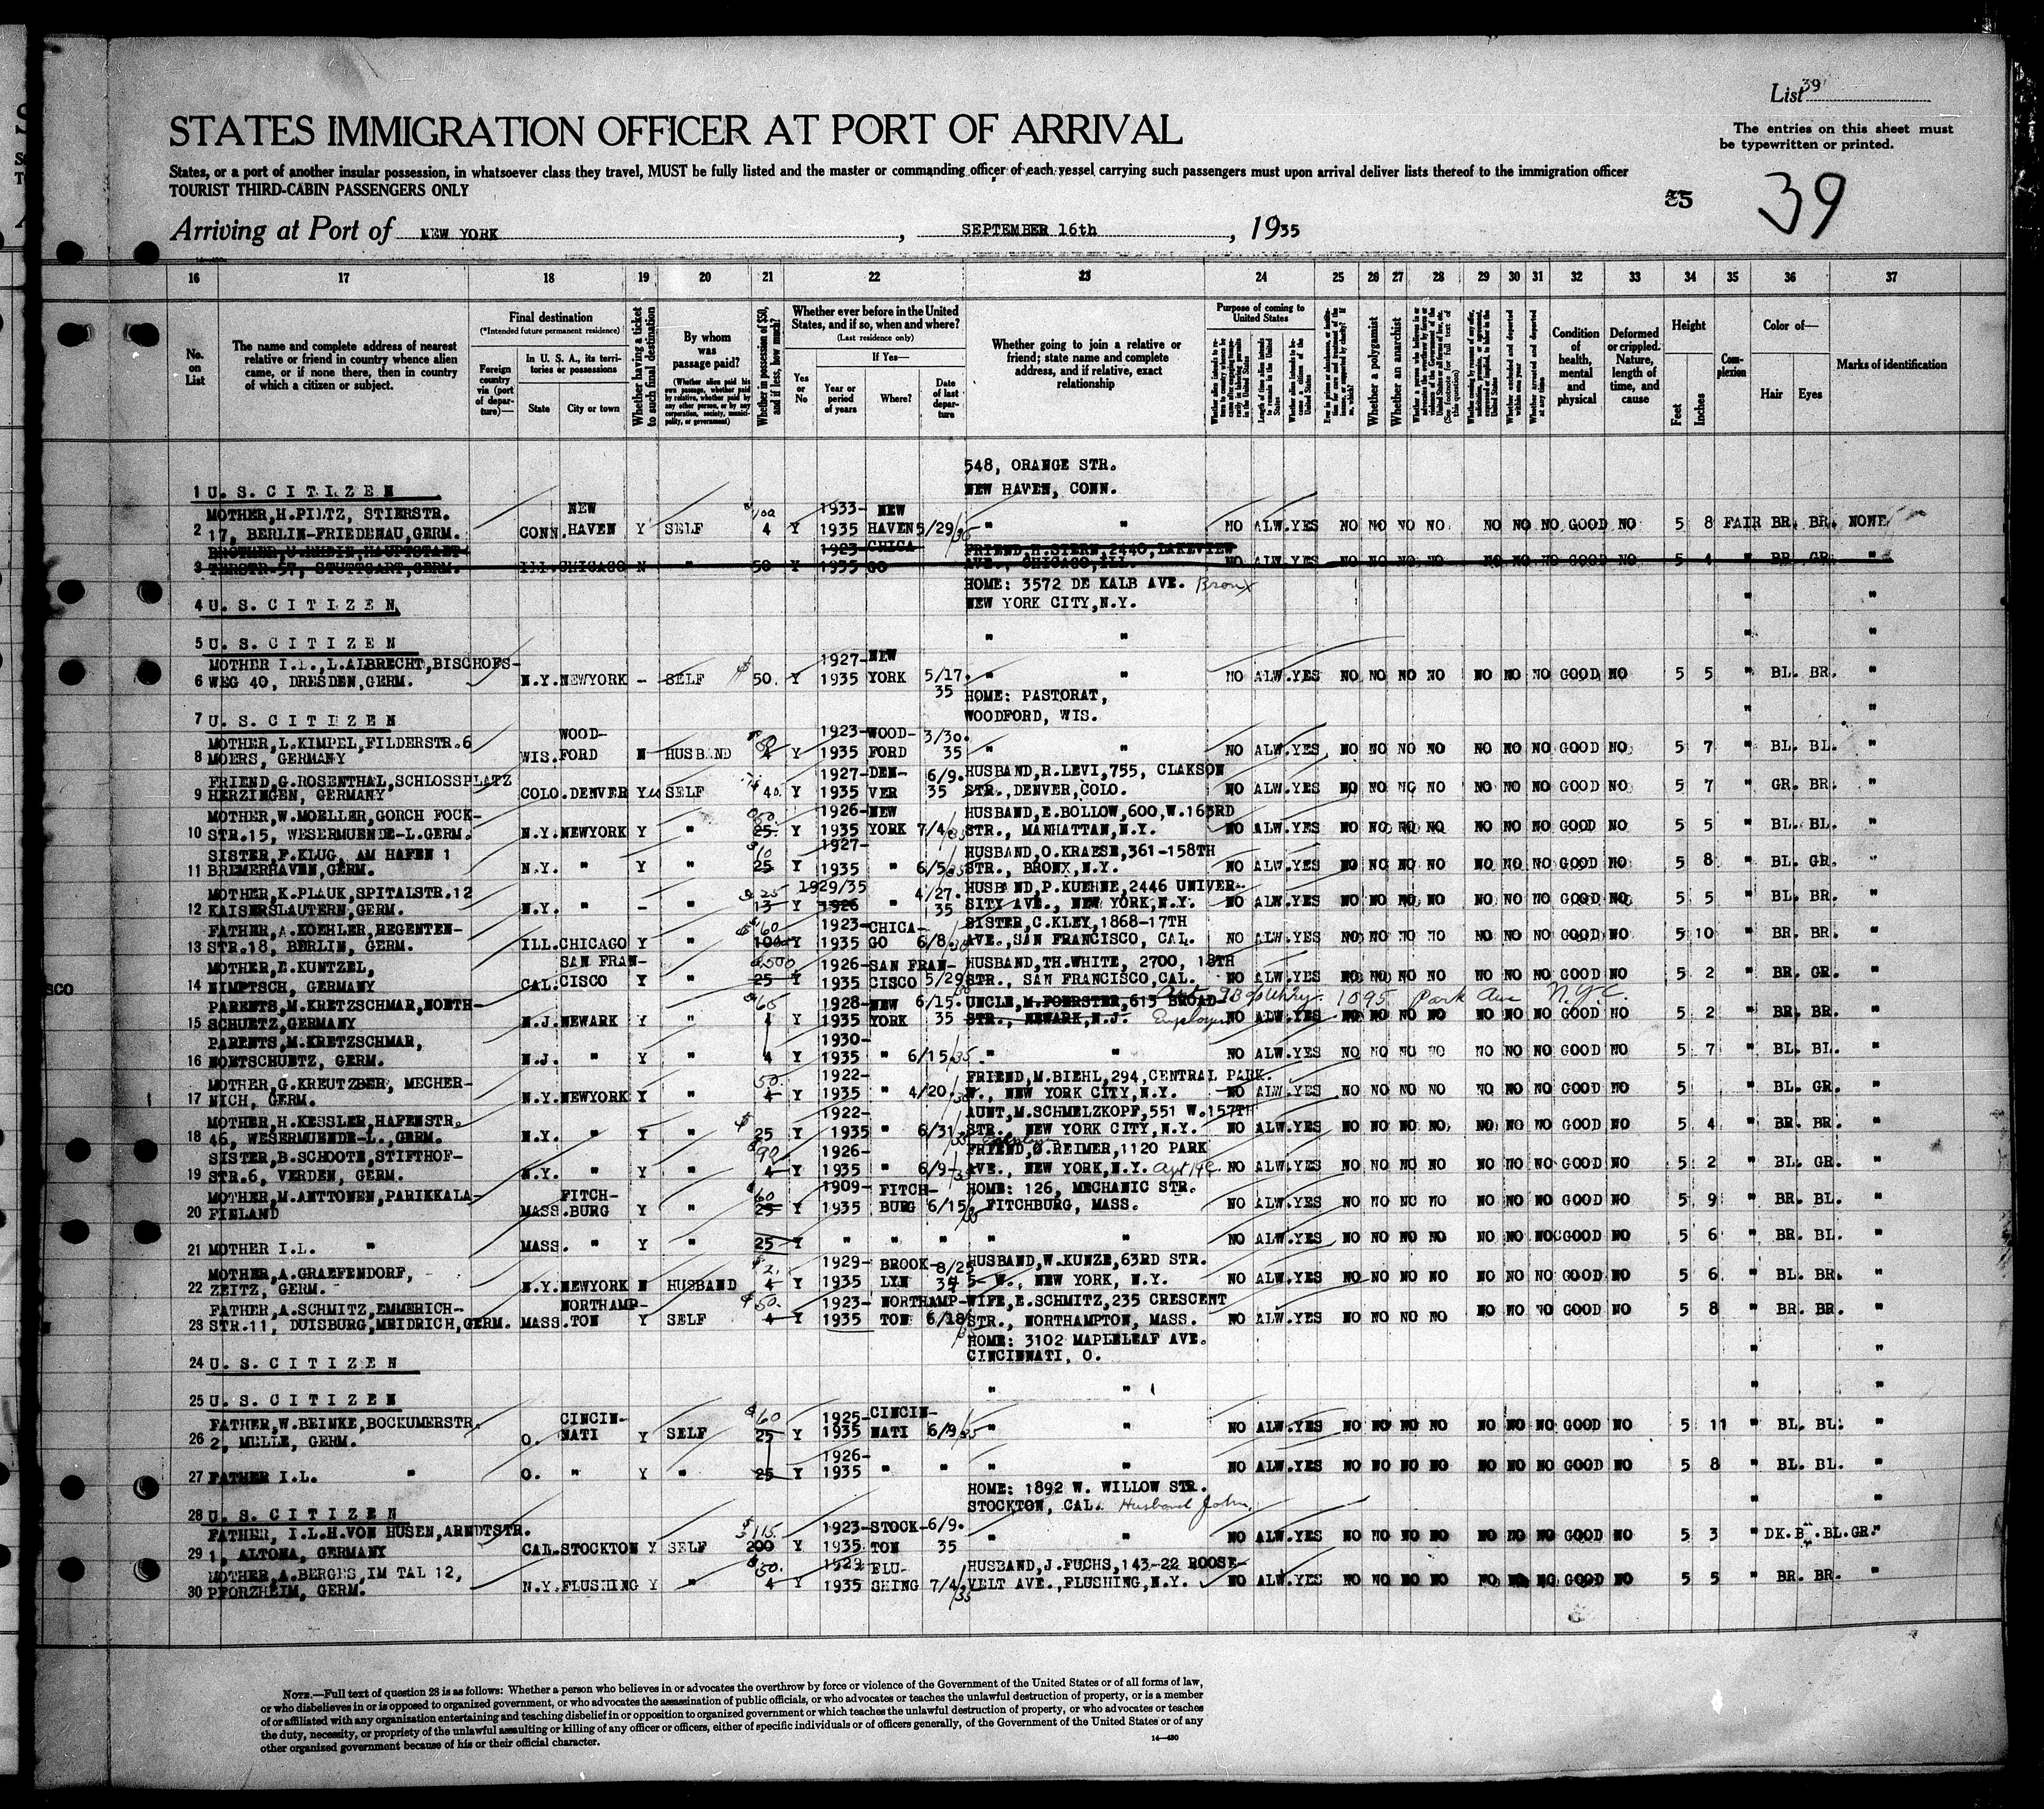 List 39
STATES IMMIGRATION OFFICER AT PORT OF ARRIVAL
The entries on this sheet must
be typewritten or printed.
States, or a port of another insular possession, in whatsoever class they travel, MUST be fully listed and the master or commanding officer of each vessel carrying such passengers must upon arrival deliver lists thereof to the immigration officer
TOURIST THIRD-CABIN PASSENGERS ONLY
39
Arriving at Port of NEW YORK, SEPTEMBER 16th, 1935
16 17 18 19 20 21 22 23 24 25 26 27 28 29 30 31 32 33 34 35 36 37
No. on List
The name and complete address of nearest relative or friend in country whence alien came, or if none there, then in country of which a citizen or subject.
Final destination
(*Intended future permanent residence)
Foreign country via (port of departure)—
In U. S. A., its territories or possessions
State City or town
Whether having a ticket to such final destination
By whom was passage paid?
(Whether alien paid his own passage, whether paid by relative, whether paid by any other person, or by any corporation, society, municipality, or government)
Whether in possession of $50, and if less, how much?
Whether ever before in the United States, and if so, when and where?
(Last residence only)
Yes or No
If Yes—
Year or period of years
Where?
Date of last departure
Whether going to join a relative or friend; state name and complete address, and if relative, exact relationship
Purpose of coming to United States
Whether a polygamist
Whether an anarchist
Condition of health, mental and physical
Deformed or crippled. Nature, length of time, and cause
Height
Feet Inches
Complexion
Color of—
Hair Eyes
Marks of identification
548, ORANGE STR.
1 U. S. C I T I Z E N NEW HAVEN, CONN.
MOTHER,H.PILTZ, STIERSTR. NEW 100 1933- NEW
2 17, BERLIN-FRIEDENAU,GERM. CONN. HAVEN Y SELF 4 Y 1935 HAVEN 5/29/35 " " NO ALW.YES NO NO NO NO NO NO NO GOOD NO 5 8 FAIR BR. BR. NONE
BROTHER,U.RHEIN,HAUPTSTAET- 1923- CHICA FRIEND,H.STERN,2440,LAKEVIEW
3 TERSTR-57, STUTTGART,GERM. ILL.CHICAGO N " 50 Y 1935 GO AVE., CHICAGO,ILL. NO ALW.YES NO NO NO NO NO NO NO GOOD NO 5 4 " BR. GR. "
HOME: 3572 DE KALB AVE. Bronx
4 U. S. C I T I Z E N NEW YORK CITY,N.Y. " "
5 U. S. C I T I Z E N " " " "
MOTHER I.L.,L.ALBRECHT,BISCHOFS- 1927- NEW
6 WEG 40, DRESDEN,GERM. N.Y.NEWYORK - SELF $ 50. Y 1935 YORK 5/17. 35 " " NO ALW.YES NO NO NO NO NO NO NO GOOD NO 5 5 " BL. BR. "
HOME: PASTORAT,
7 U. S. C I T I Z E N WOODFORD, WIS. " "
MOTHER,L.KIMPEL,FILDERSTR.6 WOOD- 1923- WOOD- 3/30.
8 MOERS, GERMANY WIS.FORD N HUSBAND 4 Y 1935 FORD 35 " " NO ALW.YES NO NO NO NO NO NO NO GOOD NO 5 7 " BL. BL. "
FRIEND,G.ROSENTHAL,SCHLOSSPLATZ 1927- DEN- 6/9. HUSBAND,R.LEVI,755, CLAKSON
9 HERZINGEN, GERMANY COLO.DENVER Y SELF 40. Y 1935 VER 35 STR.,DENVER,COLO. NO ALW.YES NO NO NO NO NO NO NO GOOD NO 5 7 " GR. BR. "
MOTHER,W.MOELLER,GORCH FOCK- 1926- NEW HUSBAND,E.BOLLOW,600,W.163RD
10 STR.15, WESERMUENDE-L.GERM. N.Y.NEWYORK Y " 25. Y 1935 YORK 7/4/35 STR., MANHATTAN,N.Y. NO ALW.YES NO NO NO NO NO NO NO GOOD NO 5 5 " BL. BL. "
SISTER,F.KLUG, AM HAFEN 1 $10 1927- HUSBAND,O.KRAESE,361-158TH
11 BREMERHAVEN,GERM. N.Y. " Y " 25 Y 1935 " 6/5/35 STR., BRONX,N.Y. NO ALW.YES NO NO NO NO NO NO NO GOOD NO 5 8 " BL. GR. "
MOTHER,K.PLAUK,SPITALSTR.12 $25 1929/35 4/27. HUSBAND,P.KUEHNE,2446 UNIVER-
12 KAISERSLAUTERN,GERM. N.Y. " - " 13 Y 1926 35 SITY AVE., NEW YORK,N.Y. NO ALW.YES NO NO NO NO NO NO NO GOOD NO 5 5 " BL. BR. "
FATHER,A.KOEHLER,REGENTEN- $60 1923- CHICA- SISTER,C.KLEY,1868-17TH
13 STR.18, BERLIN, GERM. ILL.CHICAGO Y " 100 Y 1935 GO 6/8/35 AVE.,SAN FRANCISCO, CAL. NO ALW.YES NO NO NO NO NO NO NO GOOD NO 5 10 " BR. BR. "
MOTHER,E.KUNTZEL, SAN FRAN- 500 1926- SAN FRAN- HUSBAND,TH.WHITE, 2700, 18TH
14 NIMPTSCH, GERMANY CAL.CISCO Y " 25 Y 1935 CISCO 5/29/35 STR., SAN FRANCISCO,CAL. NO ALW.YES NO NO NO NO NO NO NO GOOD NO 5 2 " BR. GR. "
PARENTS,M.KRETZSCHMAR,NOETH- $65 1928- NEW 6/15. UNCLE,M.FOERSTER,615 BROAD- 1095 Park Ave N.Y.C.
15 SCHUETZ,GERMANY N.J.NEWARK Y " 4 Y 1935 YORK 35 STR., NEWARK,N.J. Employer NO ALW.YES NO NO NO NO NO NO NO GOOD NO 5 2 " BR. BR. "
PARENTS,M.KRETZSCHMAR, 1930-
16 NOETSCHUETZ, GERM. N.J. " Y " 4 Y 1935 " 6/15/35 " " NO ALW.YES NO NO NO NO NO NO NO GOOD NO 5 7 " BL. BL. "
MOTHER,G.KREUTZBER, MECHER- 50. 1922- FRIEND,M.BIEHL,294,CENTRAL PARK.
17 NICH, GERM. N.Y.NEWYORK Y " 4 Y 1935 " 4/20/35 W., NEW YORK CITY,N.Y. NO ALW.YES NO NO NO NO NO NO NO GOOD NO 5 " BL. GR. "
MOTHER,H.KESSLER,HAFENSTR. $ 1922- AUNT,M.SCHMELZKOPF,551 W.157TH
18 46, WESERMUENDE-L.,GERM. N.Y. " Y " 25 Y 1935 " 6/31/35 STR., NEW YORK CITY,N.Y. NO ALW.YES NO NO NO NO NO NO NO GOOD NO 5 4 " BR. BR. "
SISTER,B.SCHOOTE,STIFTHOF- $90 1926- FRIEND,G.REIMER,1120 PARK
19 STR.6, VERDEN, GERM. N.Y. " Y " 4 Y 1935 " 6/9-35 AVE., NEW YORK,N.Y. Apt 14C. NO ALW.YES NO NO NO NO NO NO NO GOOD NO 5 2 " BL. GR. "
MOTHER,M.ANTTONEN,PARIKKALA- FITCH- 60 1909- FITCH- HOME: 126, MECHANIC STR.
20 FINLAND MASS.BURG Y " 25 Y 1935 BURG 6/15/35 FITCHBURG, MASS. NO ALW.YES NO NO NO NO NO NO NO GOOD NO 5 9 " BR. BL. "
21 MOTHER I.L. " MASS. " Y " 25 Y " " " " " NO ALW.YES NO NO NO NO NO NO NO GOOD NO 5 6 " BR. BL. "
MOTHER,A.GRAEFENDORF, $2. 1929- BROOK- 8/25 HUSBAND,W.KUNZE,63RD STR.
22 ZEITZ, GERM. N.Y.NEWYORK N HUSBAND 4 Y 1935 LYN W., NEW YORK, N.Y. NO ALW.YES NO NO NO NO NO NO NO GOOD NO 5 6 " BL. BR. "
FATHER,A.SCHMITZ,EMMERICH- NORTHAMP- $50. 1923- NORTHAMP- WIFE,E.SCHMITZ,235 CRESCENT
23 STR.11, DUISBURG,MEIDRICH,GERM. MASS.TON Y SELF 4 Y 1935 TON 6/18/35 STR., NORTHAMPTON, MASS. NO ALW.YES NO NO NO NO NO NO NO GOOD NO 5 8 " BR. BR. "
HOME: 3102 MAPLELEAF AVE.
24 U. S. C I T I Z E N CINCINNATI, O. " "
25 U. S. C I T I Z E N " " " "
FATHER,W.BEINKE,BOCKUMERSTR. CINCIN- $60 1925- CINCIN-
26 2, MELLE, GERM. O. NATI Y SELF 25 Y 1935 NATI 6/9/35 " " NO ALW.YES NO NO NO NO NO NO NO GOOD NO 5 11 " BL. BL. "
1926-
27 FATHER I.L. " O. " Y " 25 Y 1935 " " " " NO ALW.YES NO NO NO NO NO NO NO GOOD NO 5 8 " BL. BL. "
HOME: 1892 W. WILLOW STR.
28 U. S. C I T I Z E N STOCKTON, CAL. Husband John " "
FATHER, I.L.H.VON HUSEN,ARNDTSTR. $115. 1923- STOCK- 6/9.
29 1, ALTONA, GERMANY CAL.STOCKTON Y SELF 200 Y 1935 TON 35 " " NO ALW.YES NO NO NO NO NO NO NO GOOD NO 5 3 " DK.B.BL.GR."
MOTHER,A.BERGES,IM TAL 12, $50. 1929- FLU- HUSBAND,J.FUCHS,143-22 ROOSE-
30 PFORZHEIM, GERM. N.Y.FLUSHING Y " 4 Y 1935 SHING 7/4/35 VELT AVE.,FLUSHING,N.Y. NO ALW.YES NO NO NO NO NO NO NO GOOD NO 5 5 " BR. BR. "
NOTE.—Full text of question 28 is as follows: Whether a person who believes in or advocates the overthrow by force or violence of the Government of the United States or of all forms of law,
or who disbelieves in or is opposed to organized government, or who advocates the assassination of public officials, or who advocates or teaches the unlawful destruction of property, or is a member
of or affiliated with any organization entertaining and teaching disbelief in or opposition to organized government or which teaches the unlawful destruction of property, or who advocates or teaches
the duty, necessity, or propriety of the unlawful assaulting or killing of any officer or officers, either of specific individuals or of officers generally, of the Government of the United States or of any
other organized government because of his or their official character.
14—430